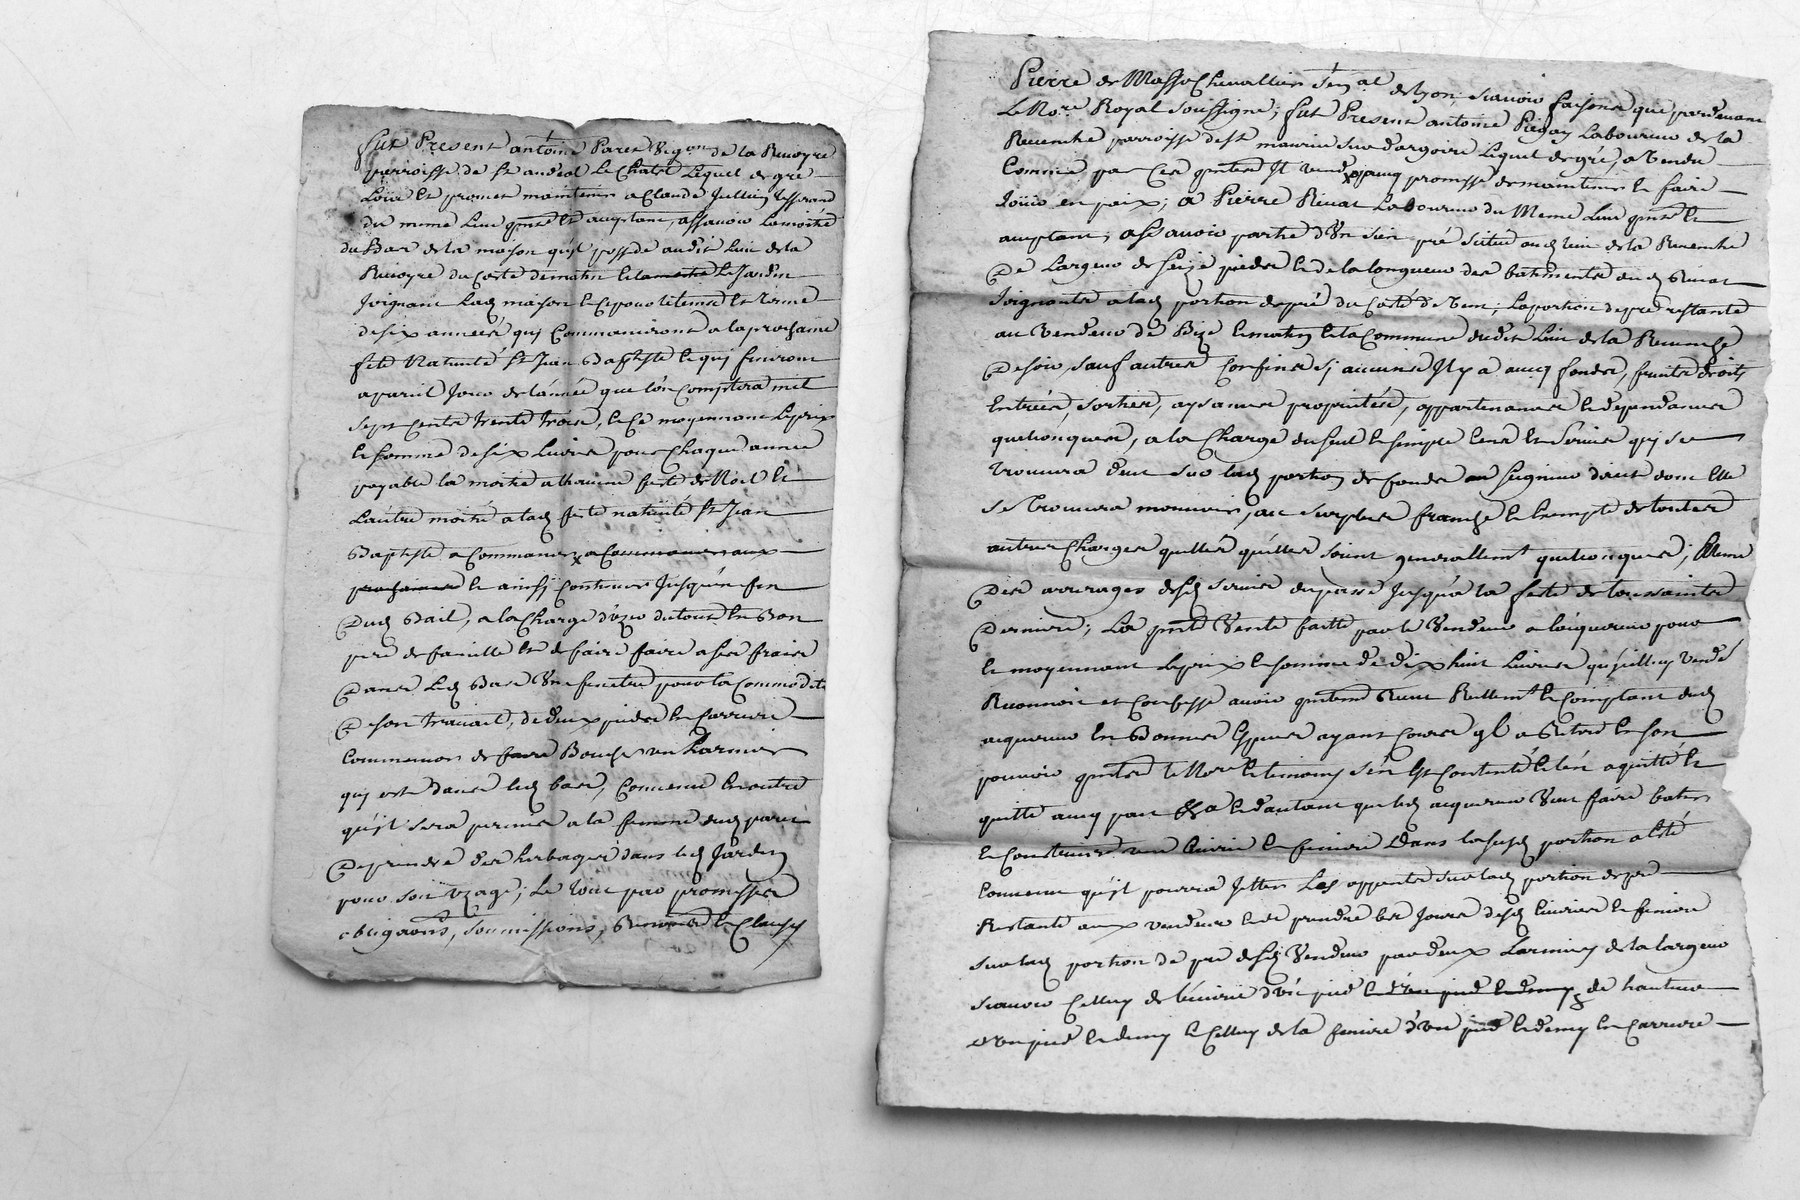 fut Present antoine Paret Vigon de la Rivoyre
parroisse de St andeol le Chatel Lequel de gré
Loüe et promet maintenir a Claude Jullien Tisserand
du meme Lieu pnt et acceptant, assavoir La moitié
du Bas de la maison qu'il possede audit Lieu de la
Rivoyre du Costé de matin et la moitié le Jardin
Joignant Lad maison et ce pour le tems et terme
de six années, qui Commanceront a la prochaine
feste Nativité St Jean Baptiste et qui finiront
a pareil Jour de l'année que l'on Comptera mil
sept cents trente trois, et ce moyennant Le prix
et somme de six Livres pour Chaque année
payable la moitié a chacune feste de Noël et
L'autre moitié a lad feste nativité St Jean
Baptiste a Commancer a
et ainsy Continuer Jusqu'en fin
Dud Bail, a la Charge d'uzer du tout en Bon
pere de famille et de faire faire a ses fraix
Dans Led Bas Une fenetre pour la Commodité
De son travail, de deux pieds en Carrure
Comme aussi de faire Boucher un Larmier
qui est dans led bas, Convenu En outre
qu'il sera permis a la femme dud paret
De prendre des herbages dans led Jardin
pour son uzage; Le tout par promesses
obligaons, soumissions, Renons et Clauses
Pierre de Masso Chevallier Sen.al de Lyon, scavoir faisons que pardevant
Le No.re Royal soussigné, fut Present antoine Piegay Laboureur de la
Revenche parroisse de St maurice sur dargoire Lequel de gré, a Vendu
Comme par Ces pntes Il vend avecq promesse de maintenir et faire
Joüir en paix; a Pierre Rivat Laboureur du Meme Lieu pnt et
acceptant, asçavoir partie d'Un sien pré situé aud lieu de la Revenche
De Largeur de seize pieds et de la longueur des batiments dud Rivat
Joignants a lad portion de pré du Costé de Vent; La portion de pré restante
au Vendeur de Bize et matin et la Commune dudit Lieu de la Revenche
De soir, sauf autres Confins sy aucuns Il y a avecq fonds, fruits droits
Entrées, sorties, aysances proprietés, appartenances et dependances
quelconques, a la Charge du seul et simple Cens et Servis qui se
trouvera deub sur lad portion de fonds au seigneur direct dont Elle
se trouvera mouvoir, au surplus franche et Exempte de toutes
autres Charges quittes quelles soient generallem.t quelconques; Meme
Des arrerages desd servis du passé Jusqu'a la feste de toussaints
Derniere; La pnte Vente faitte par le Vendeur a l'acquereur pour
et moyennant Le prix et somme de dix huit Livres qu'icelluy Vendr
Reconnoit et Confesse avoir pntem.t Receu Reellem.t et Comptant dud
acquereur En Bonnes Especes ayant Cours qu'il a Retiré En son
pouvoir pnts le No.re et temoins s'en est Contenté et l'en a quitté et
quitte avecq pact et d'autant que led acquereur Veut faire batir
et Construire une Ecurie et feniere Dans la susd portion a Eté
Convenu qu'il pourra Jetter Les appents sur lad portion de pré
Restante aux vendeur et de prendre les Jours desd Ecuries et feniere
sur lad portion de pré dud Vendeur par deux Larmiers de la largeur
scavoir Celluy de l'écurie d'un pied de hauteur
un pied et demy et Celluy de la feniere d'un pied et demy en Carrure